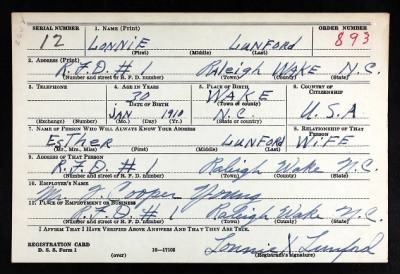 SERIAL NUMBER 1. NAME (Print) ORDER NUMBER
12 LONNIE LUNFORD 893
(First) (Middle) (Last)
2. ADDRESS (Print)
R.F.D. #1 Raleigh Wake N.C.
(Number and street or R. F. D. number) (Town) (County) (State)
3. TELEPHONE 4. AGE IN YEARS 5. PLACE OF BIRTH 6. COUNTRY OF CITIZENSHIP
30 WAKE
DATE OF BIRTH (Town or county)
JAN 1910 N.C. U.S.A
(Exchange) (Number) (Mo.) (Day) (Yr.) (State or country)
7. NAME OF PERSON WHO WILL ALWAYS KNOW YOUR ADDRESS 8. RELATIONSHIP OF THAT PERSON
EsTHER LUNFORD WIFE
(Mr., Mrs., Miss) (First) (Middle) (Last)
9. ADDRESS OF THAT PERSON
R.F.D. #1 Raleigh Wake N.C.
(Number and street or R. F. D. number) (Town) (County) (State)
10. EMPLOYER'S NAME
Mr. J. Cooper Young
11. PLACE OF EMPLOYMENT OR BUSINESS
R.F.D. #1 Raleigh Wake N.C.
(Number and street or R. F. D. number) (Town) (County) (State)
I AFFIRM THAT I HAVE VERIFIED ABOVE ANSWERS AND THAT THEY ARE TRUE.
REGISTRATION CARD
D. S. S. Form 1 16—17105 Lonnie X Lunford
(over) (Registrant's signature)